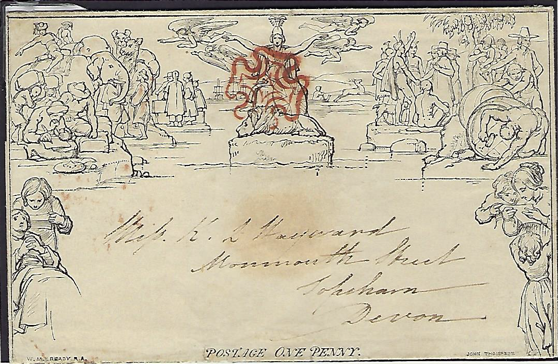 Miss K. L Hayward
Monmouth Street
Topsham
Devon
POSTAGE ONE PENNY.
W. MULREADY. R.A.
JOHN THOMPSON